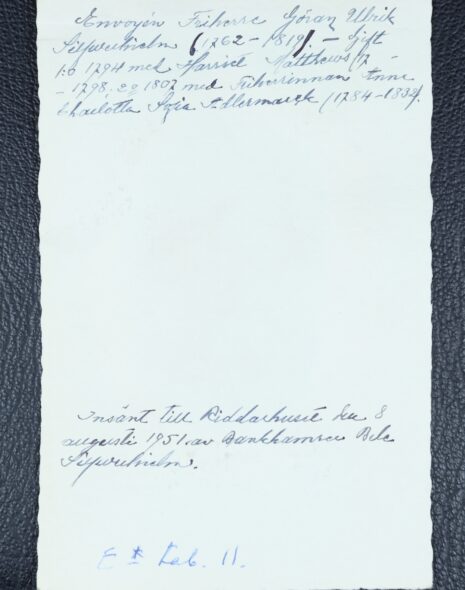 Envoyén Friherre Göran Ulrik
Silfverhielm (1762-1819). - Gift
1:o 1794 med Harriet Matthews (17 -
- 1798, 2:o 1807 med Friherrinnan Anne
Charlotta Sofia Adlermarck (1784-1832).
Insänt till Riddarhuset den 8
augusti 1951 av Bankkamrer
Silfverhielm.
Tab. 11.